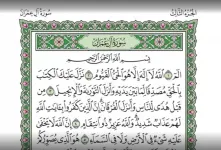 سورة آل عمران
الجزء الثالث
سورة آل عمران
بسم الله الرحمن الرحيم
الم ١ الله لا إله إلا هو الحي القيوم ٢ نزل عليك الكتب
بالحق مصدقا لما بين يديه وأنزل التورىة والإنجيل ٣ من
قبل هدى للناس وأنزل الفرقان إن الذين كفروا بايت الله
لهم عذاب شديد والله عزيز ذو انتقام ٤ إن الله لا يخفى
عليه شىء في الأرض ولا في السماء ٥ هو الذي يصوركم